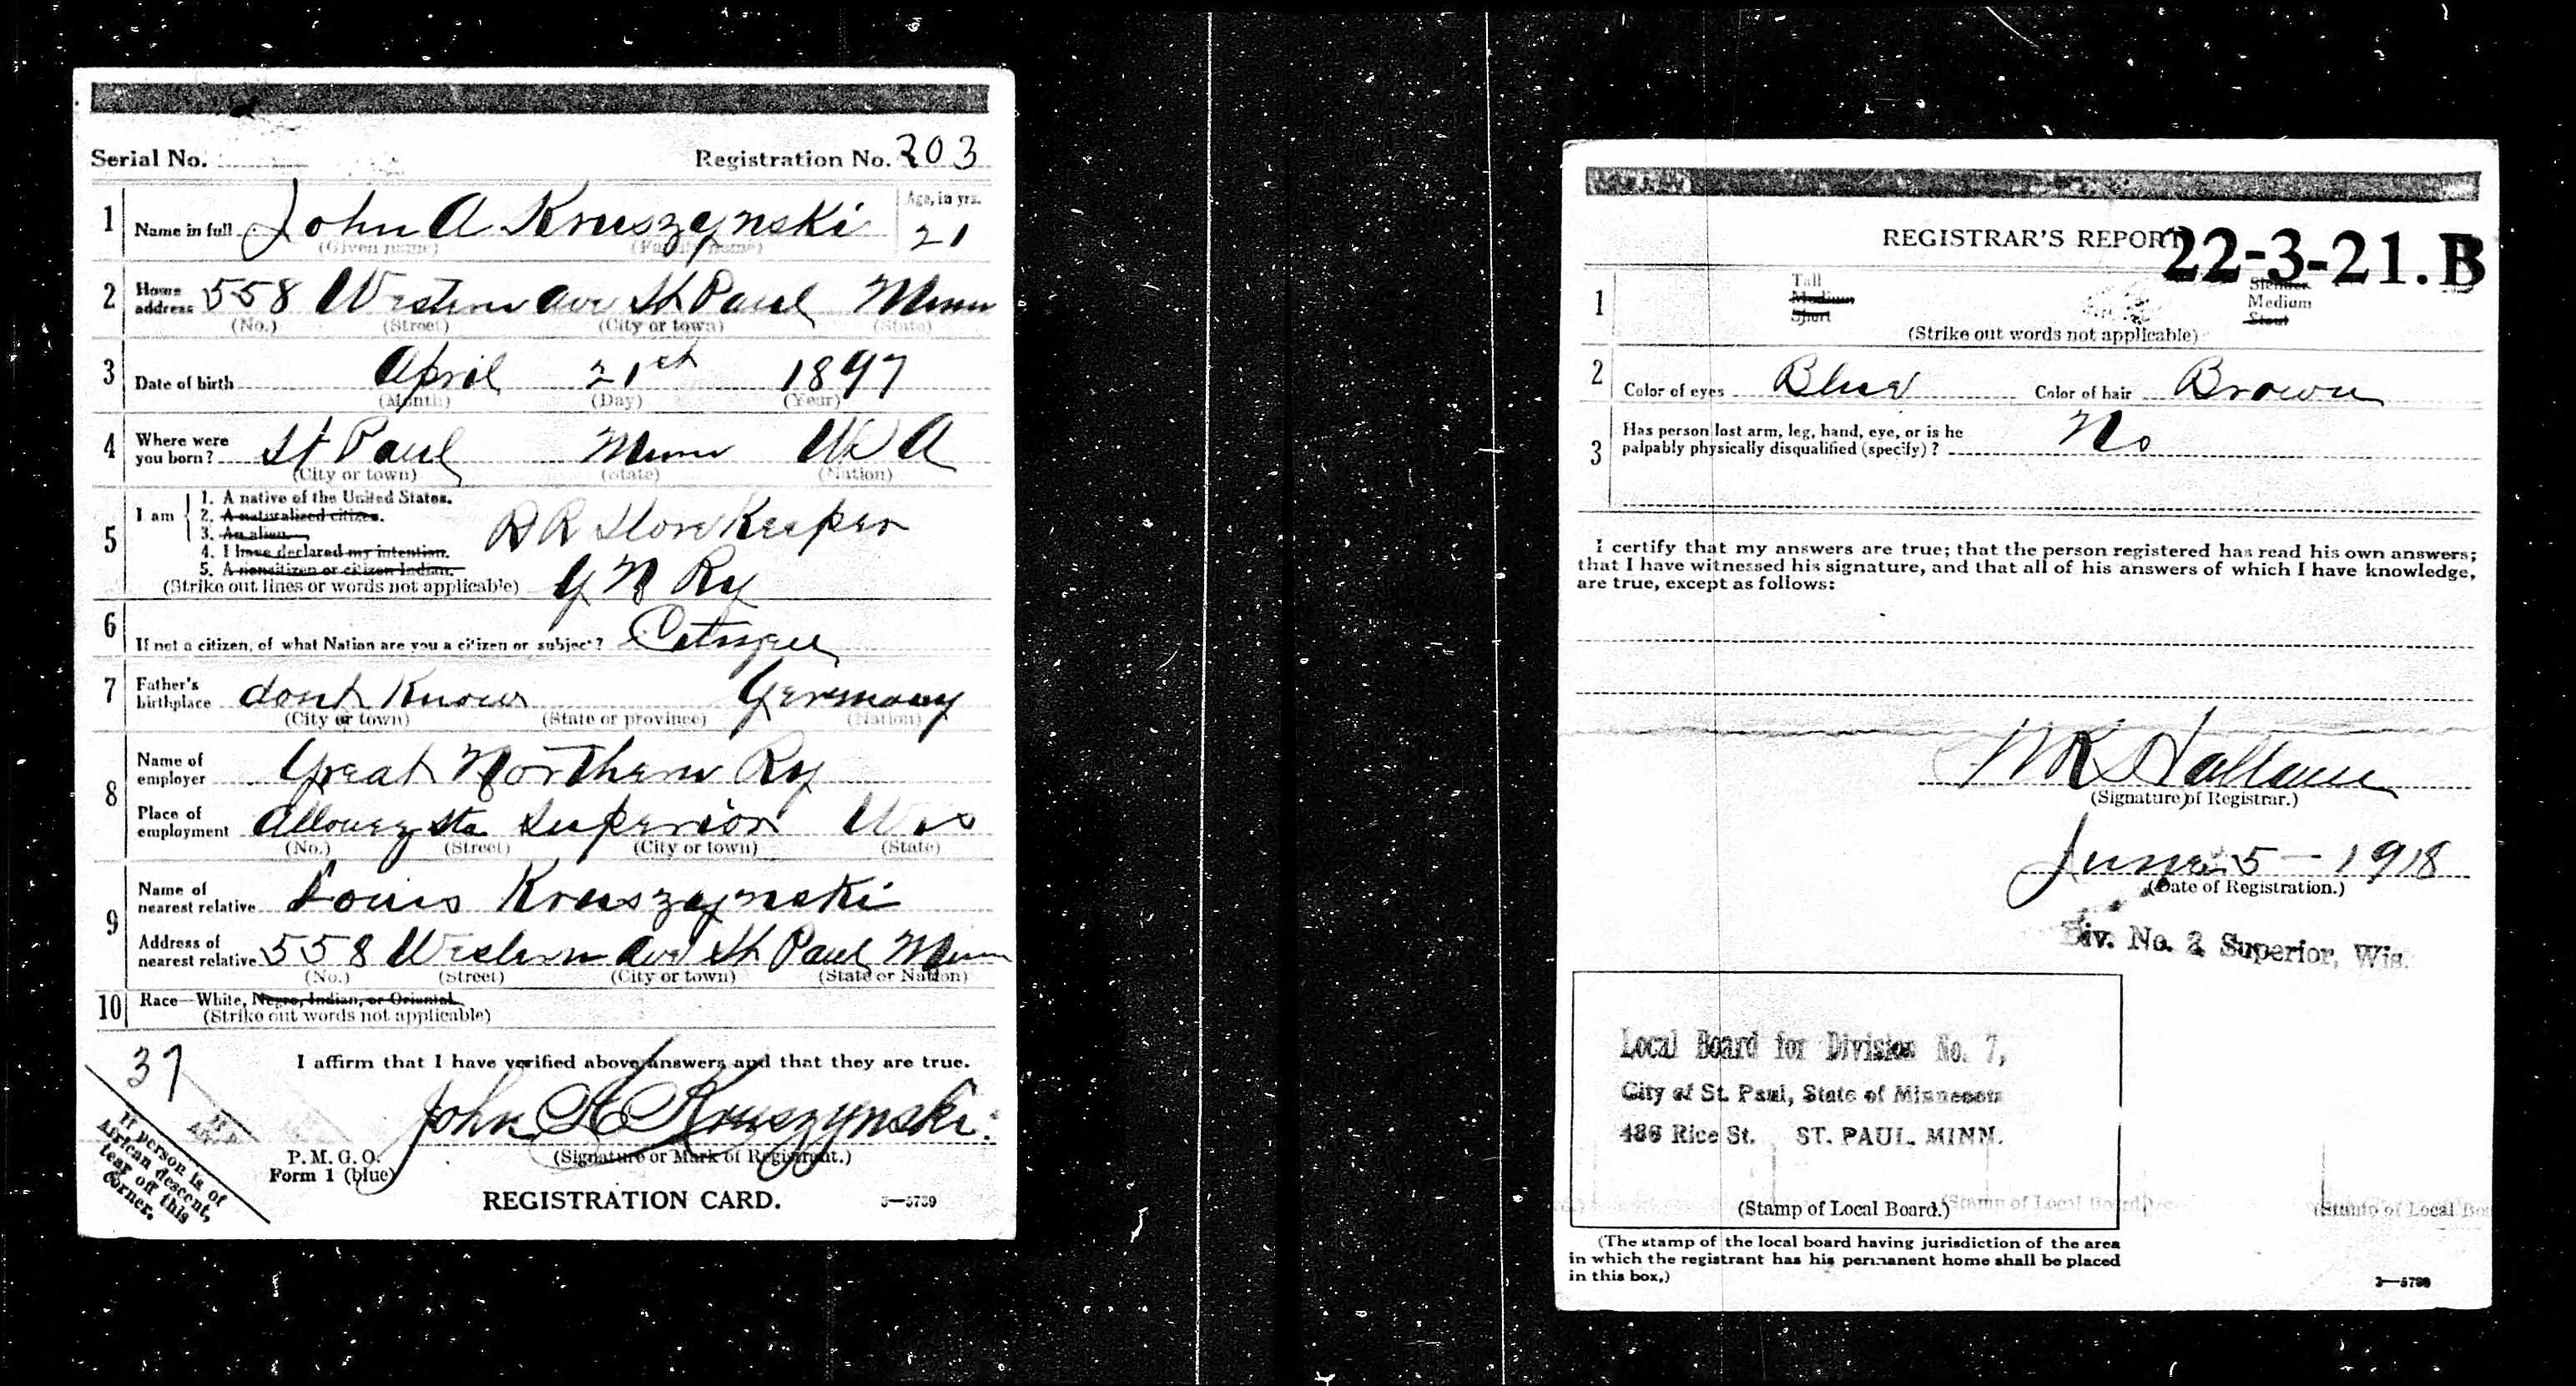 Serial No. Registration No. 203
1 Name in full John A Kruszynski Age, in yrs.
(Given name) (Family name) 21
2 Home address 558 Western Ave St Paul Minn
(No.) (Street) (City or town) (State)
3 Date of birth April 21st 1897
(Month) (Day) (Year)
4 Where were you born? St Paul Minn
(City or town) (State) (Nation)
5 I am
1. A native of the United States.
2. A naturalized citizen.
3. An alien.
4. I have declared my intention.
5. A noncitizen or citizen Indian.
(Strike out lines or words not applicable)
RR Store Keeper
G N Ry
6 If not a citizen, of what Nation are you a citizen or subject?
7 Father's birthplace dont Know Germany
(City or town) (State or province) (Nation)
8 Name of employer Great Northern Ry
Place of employment Allouez Sta Superior Wis
(No.) (Street) (City or town) (State)
9 Name of nearest relative Louis Kruszynski
Address of nearest relative 558 Western Ave St Paul Minn
(No.) (Street) (City or town) (State or Nation)
10 Race—White, Negro, Indian, or Oriental.
(Strike out words not applicable)
37
I affirm that I have verified above answers and that they are true.
John A Kruszynski
(Signature or Mark of Registrant.)
P. M. G. O.
Form 1 (blue)
REGISTRATION CARD. 3—5739
If person is of
African descent,
tear off this
corner.
REGISTRAR'S REPORT
22-3-21. B
1 Tall Slender
Medium Medium
Short Stout
(Strike out words not applicable)
2 Color of eyes Blue Color of hair Brown
3 Has person lost arm, leg, hand, eye, or is he
palpably physically disqualified (specify)? No
I certify that my answers are true; that the person registered has read his own answers;
that I have witnessed his signature, and that all of his answers of which I have knowledge,
are true, except as follows:
(Signature of Registrar.)
June 5 - 1918
(Date of Registration.)
Div. No. 2 Superior, Wis.
Local Board for Division No. 7,
City of St. Paul, State of Minnesota
486 Rice St. ST. PAUL. MINN.
(Stamp of Local Board.)
(The stamp of the local board having jurisdiction of the area
in which the registrant has his permanent home shall be placed
in this box.)